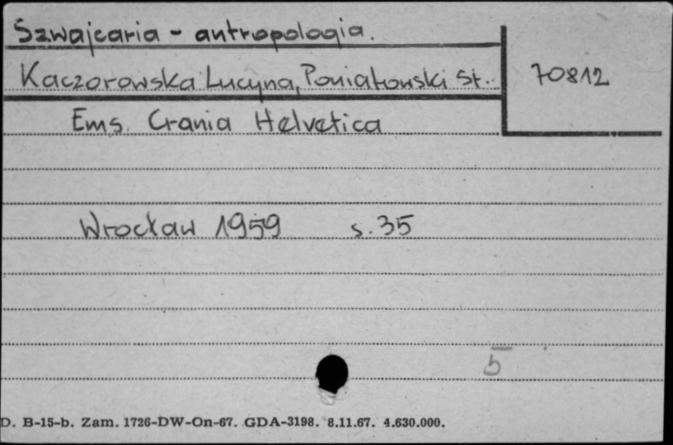 Szwajcaria - antropologia.
Kaczorowska Lucyna, Poniatowski St.
70812
Ems. Crania Helvetica
Wrocław 1959 s. 35
b
D. B-15-b. Zam. 1726-DW-On-67. GDA-3198. 8.11.67. 4.630.000.